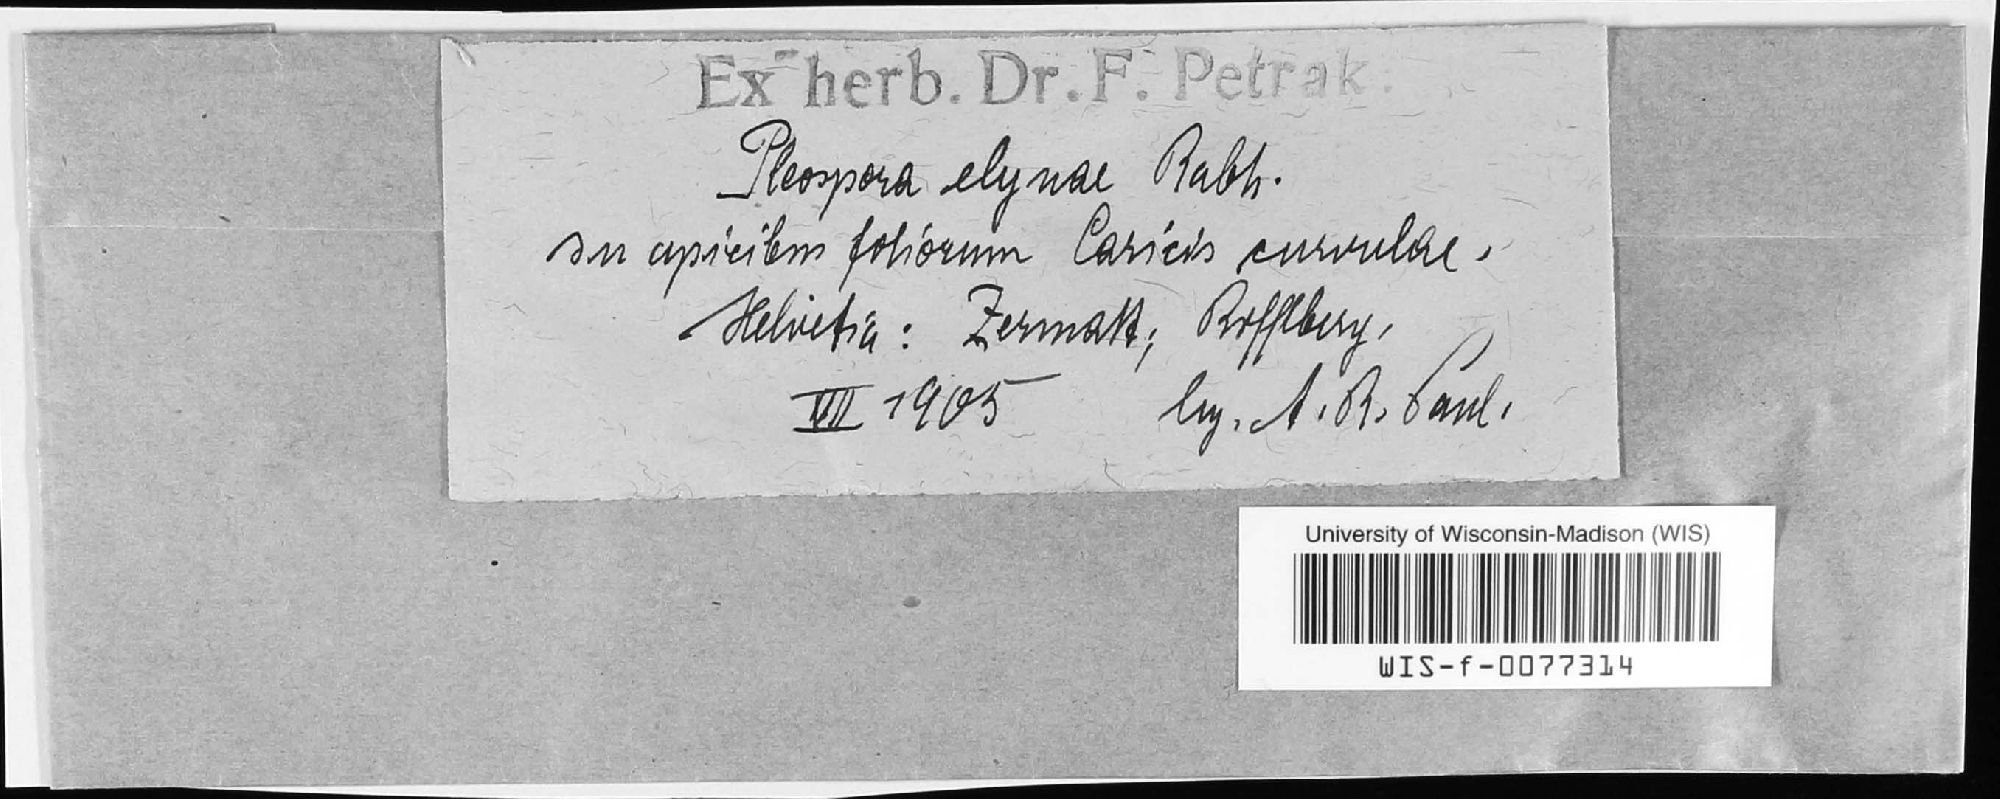 Ex herb. Dr. F. Petrak.
Pleospora elynae Rabh.
in apicibus foliorum Caricis curvulae.
Helvetia: Zermatt; Riffelberg,
VII 1905 leg. A. R. Paul.
University of Wisconsin-Madison (WIS)
WIS-f-0077314